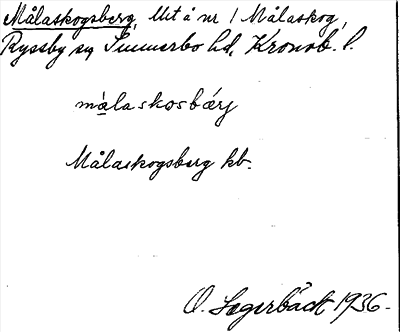 Målaskogsberg, Urt å nr 1 Målaskog,
Ryssby sn Sunnerbo hd, Kronob. l.
målaskosbærj
Målaskogsberg kb.
O. Lagerbäck 1936.